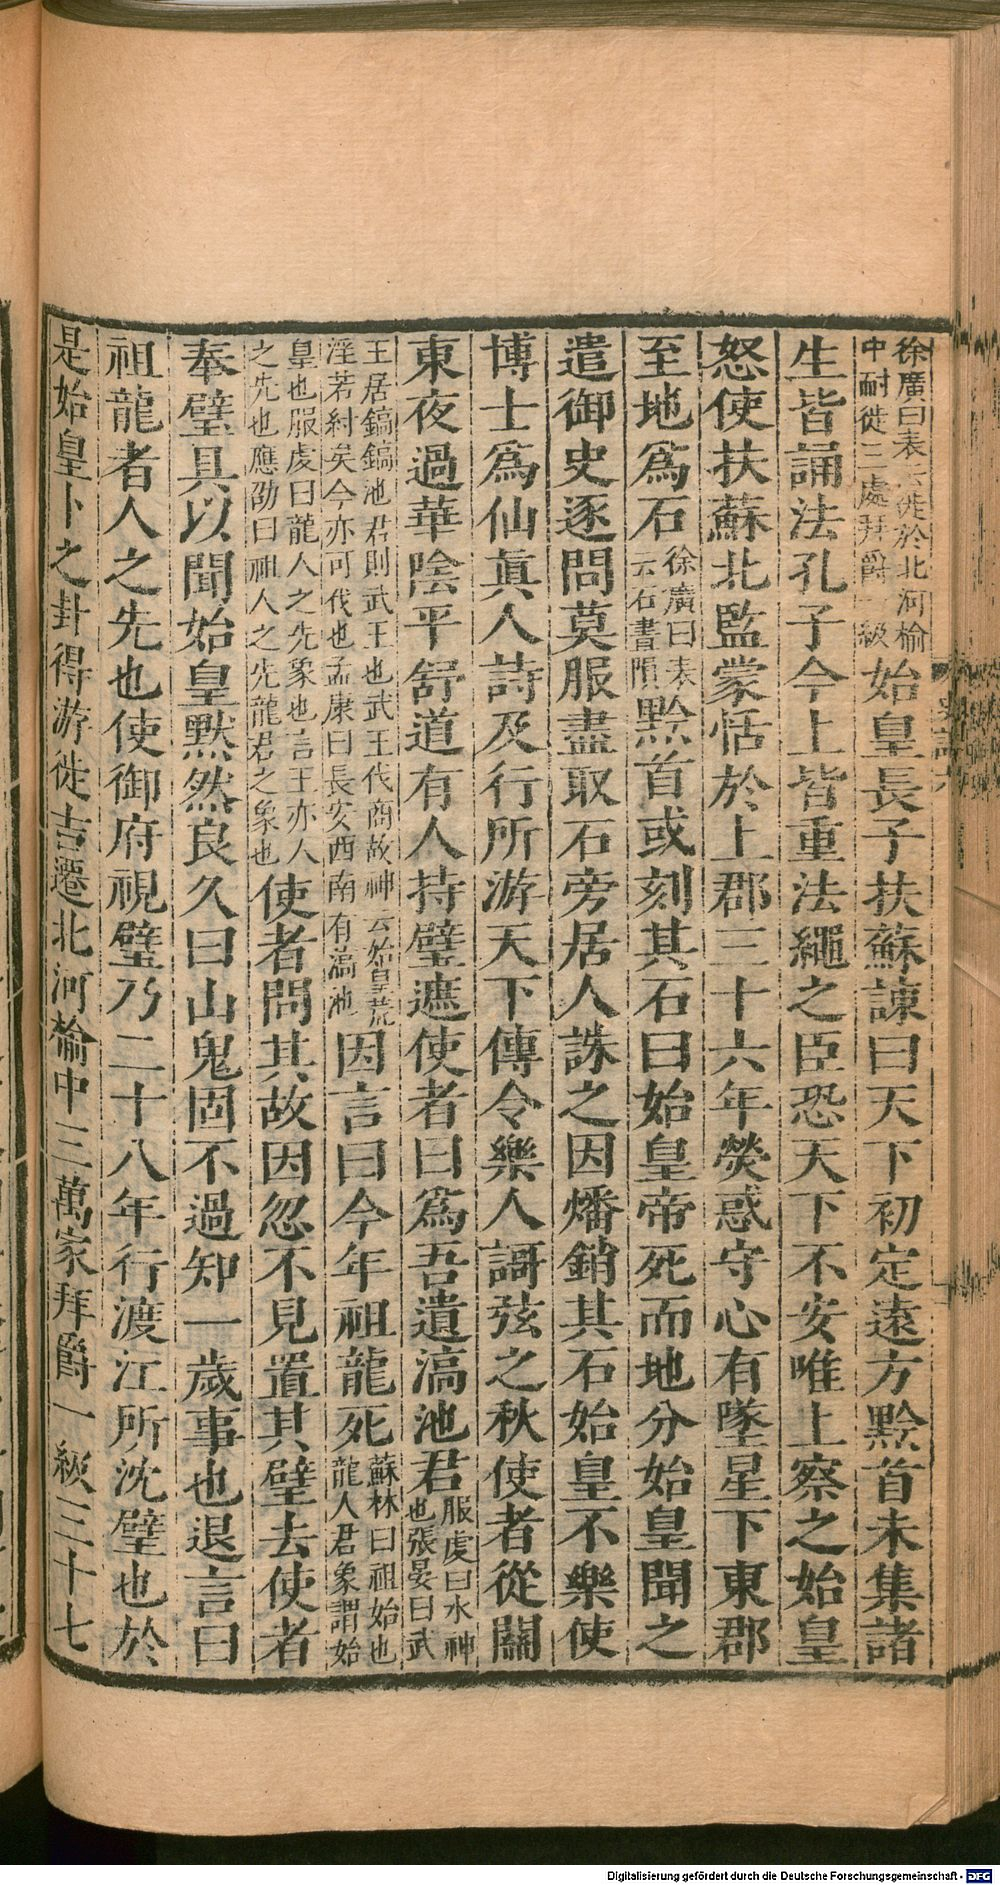 徐廣曰表云徙於北河榆
中耐徙三處拜爵一級
始皇長子扶蘇諫曰天下初定遠方黔首未集諸
生皆誦法孔子今上皆重法繩之臣恐天下不安唯上察之始皇
怒使扶蘇北監蒙恬於上郡三十六年熒惑守心有墜星下東郡
至地爲石
徐廣曰表
云石晝隕
黔首或刻其石曰始皇帝死而地分始皇聞之
遣御史逐問莫服盡取石旁居人誅之因燔銷其石始皇不樂使
博士爲仙眞人詩及行所游天下傳令樂人謌弦之秋使者從關
東夜過華陰平舒道有人持璧遮使者曰爲吾遺滈池君
服虔曰水神
也張晏曰武
王居鎬鎬池君則武王也武王代商故神云始皇荒
淫若紂矣今亦可伐也孟康曰長安西南有滈池
因言曰今年祖龍死
蘇林曰祖始也
龍人君象謂始
皇也服虔曰龍人之先象也言王亦人
之先也應劭曰祖人之先龍君之象也
使者問其故因忽不見置其璧去使者
奉璧具以聞始皇默然良久曰山鬼固不過知一歲事也退言曰
祖龍者人之先也使御府視璧乃二十八年行渡江所沈璧也於
是始皇卜之卦得游徙吉遷北河榆中三萬家拜爵一級三十七
Digitalisierung gefördert durch die Deutsche Forschungsgemeinschaft - DFG